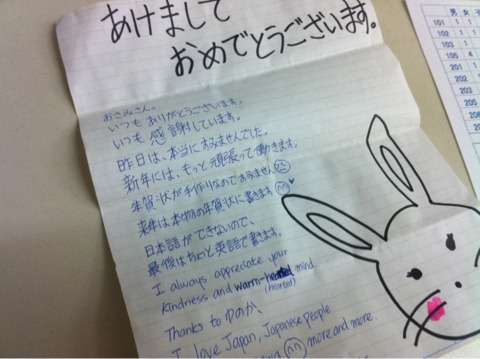 あけまして
おめでとうございます。
おさみさん。
いつもありがとうございます。
いつも感謝しています。
昨日は、本当にすみませんでした。
新年には、もっと頑張って働きます。
年賀状が手作りなのですみません
来年は本物の年賀状に書きます
日本語ができないので、
最後はちょっと英語で書きます。
I always appreciate your
kindness and warm-hearted mind
(hearted)
Thanks to ゆのか,
I love Japan, Japanese people
more and more.
男 女
101
102
103
201
202
203
205